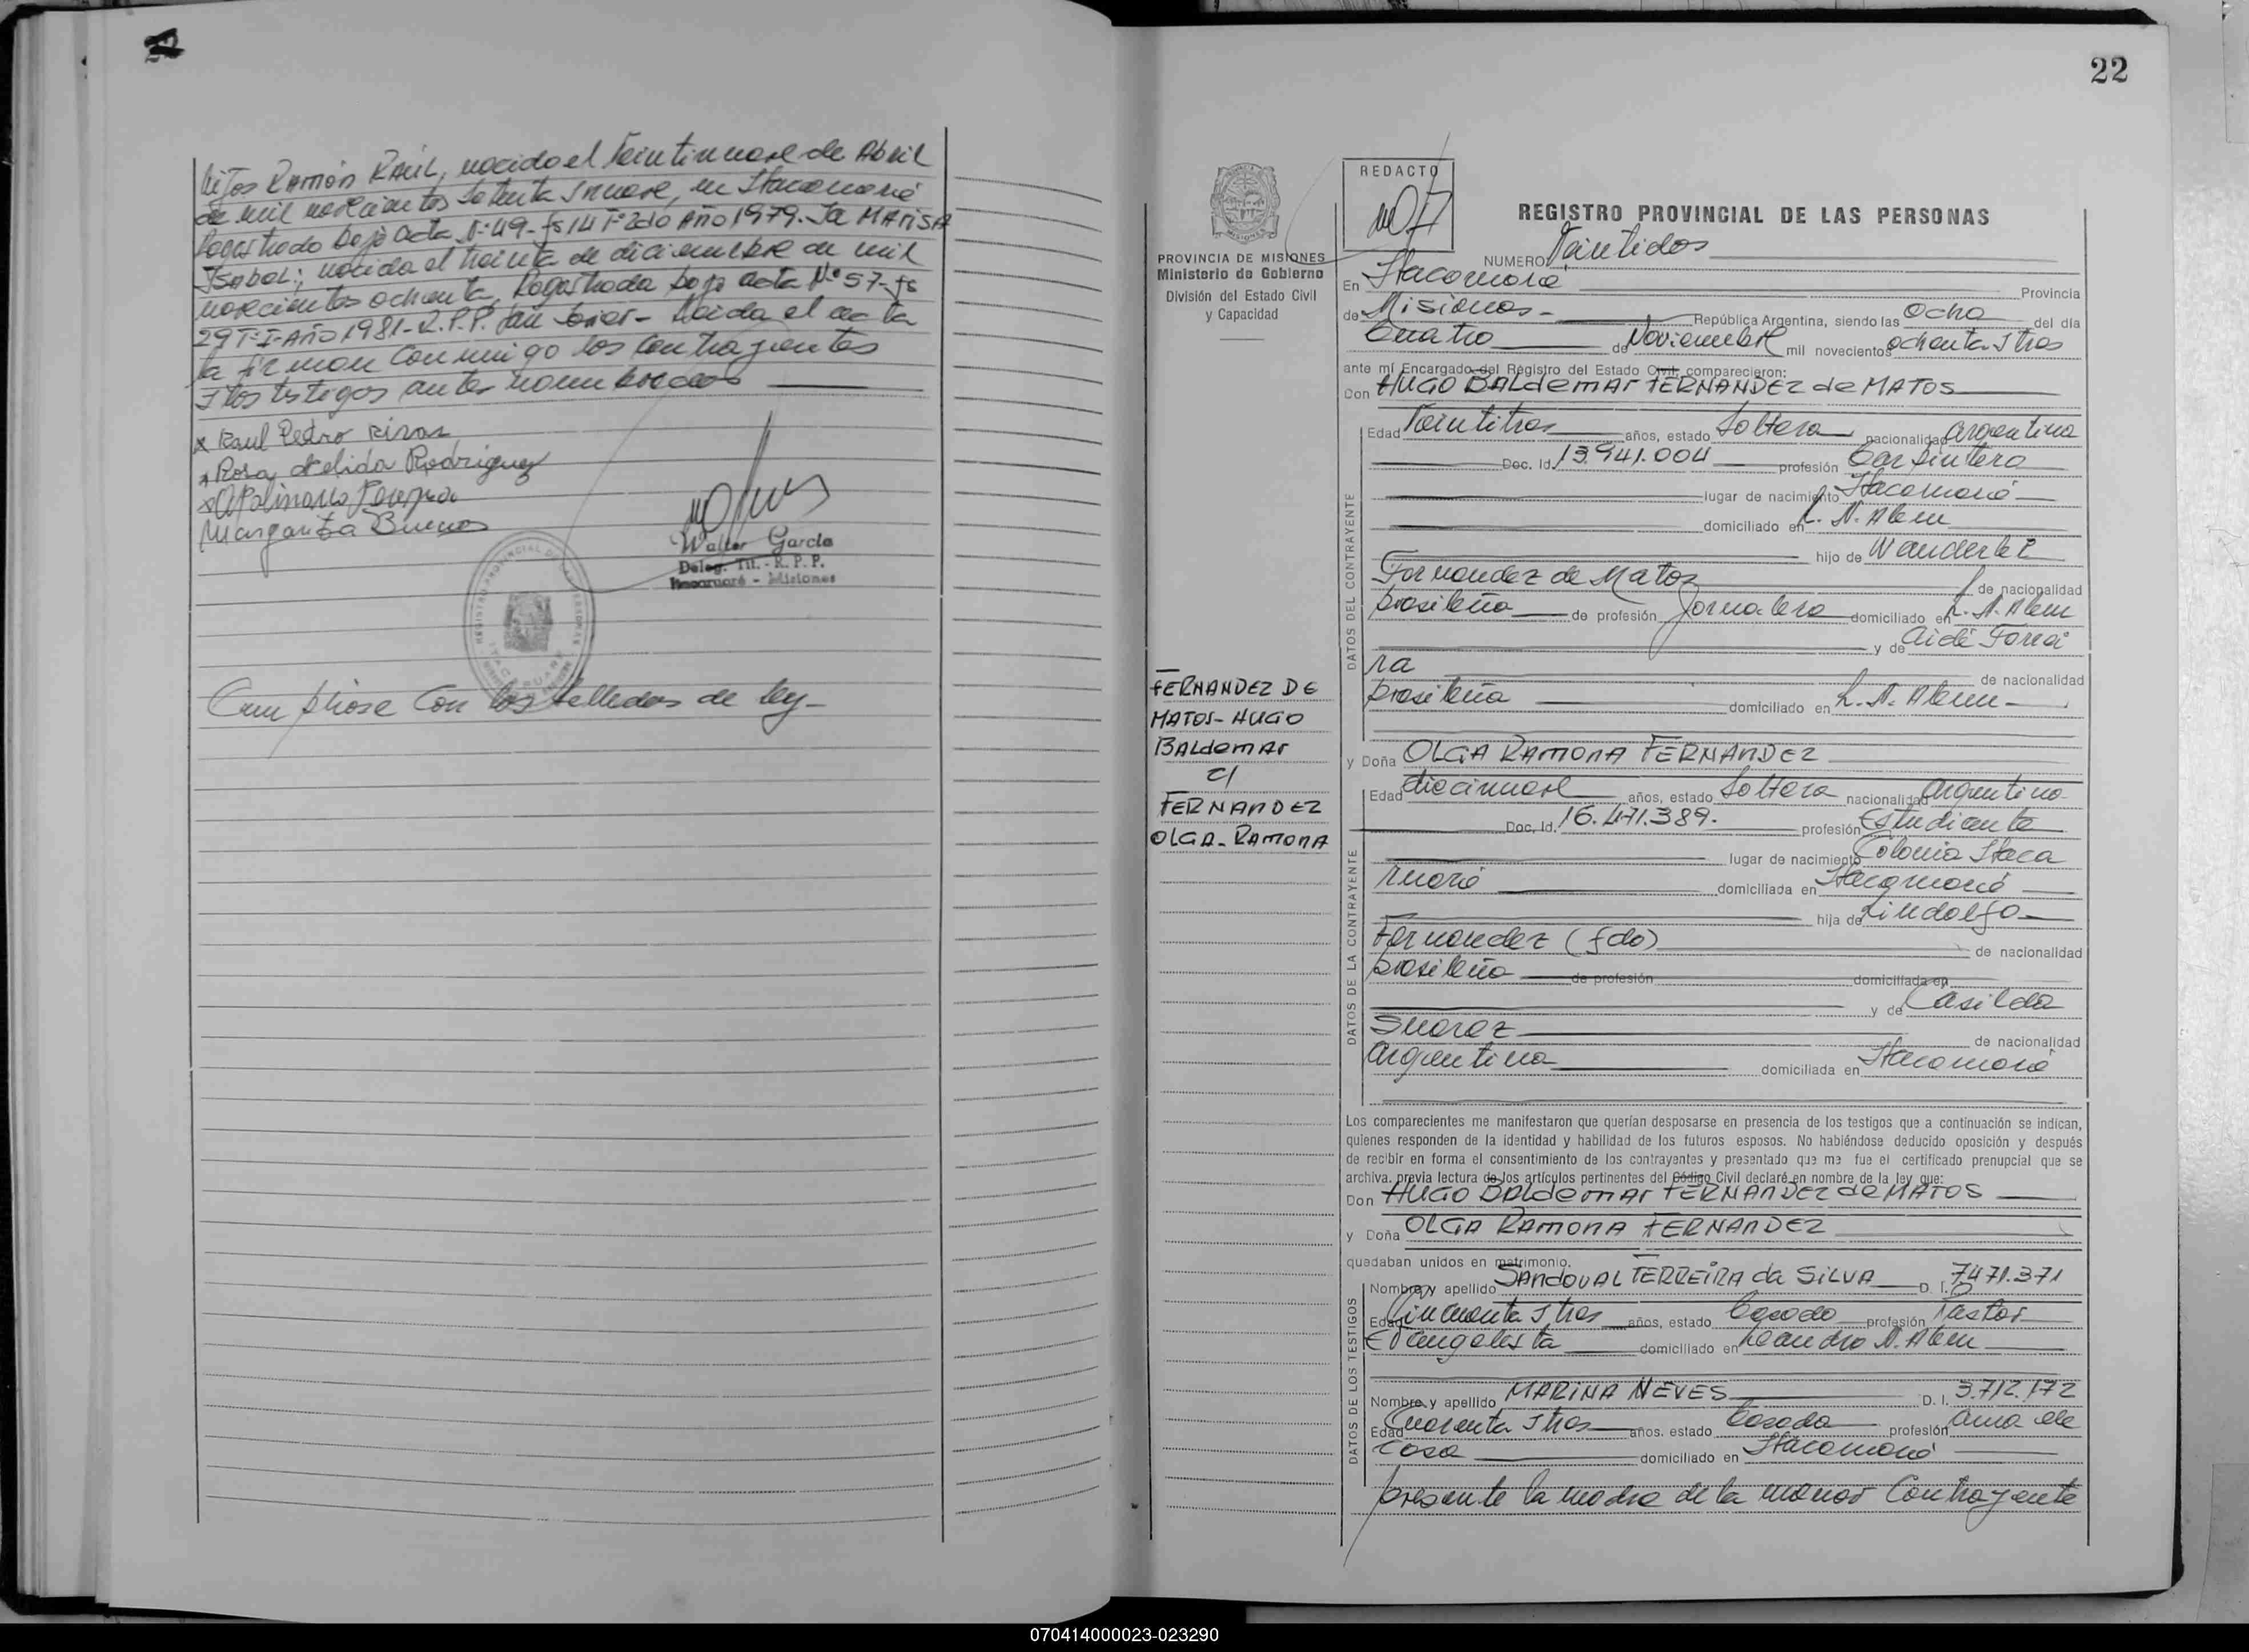 hijos Ramón RAÚL, nacido el veintinueve de Abril
de mil novecientos setenta y nueve, en Itacaruaré
Registrado bajo acta Nº 49- fs 14 Tº 2do Año 1979. Ya MARISA
Isabel; nacida el treinta de diciembre de mil
novecientos ochenta, Registrada bajo acta Nº 57- fs
29 T: I- Año 1981- R.P.P. San Javier- Leida el acta
la firman conmigo los contrayentes
y los testigos antes nombrados
x Raul Pedro Rivas
x Rosa Nelida Rodriguez
x Apolinario
Margarita Bueno
Walter García
Deleg. Tit. - R. P. P.
Itacaruaré - Misiones
Cumpliose con los sellados de ley-
22
REDACTO
PROVINCIA DE MISIONES
Ministerio de Gobierno
División del Estado Civil
y Capacidad
REGISTRO PROVINCIAL DE LAS PERSONAS
NUMERO Veintidos
En Itacaruaré Provincia
de Misiones- República Argentina, siendo las Ocho del día
Cuatro de Noviembre mil novecientos ochenta y tres
ante mí Encargado del Registro del Estado Civil, comparecieron:
Don HUGO BALdemar FERNANDEZ de MATOS
DATOS DEL CONTRAYENTE
Edad Veintitres años, estado Soltero nacionalidad argentina
Doc. Id. 13.941.004 profesión Carpintero
lugar de nacimiento Itacaruaré
domiciliado en L. N. Alem
hijo de Wanderlei
Fernandez de Matos de nacionalidad
brasileña de profesión Jornalero domiciliado en L. N. Alem
y de Aidé Ferrei
ra de nacionalidad
brasileña domiciliado en L. N. Alem-
FERNANDEZ DE
MATOS- HUGO
BALdemar
c/
FERNANDEZ
OLGA- RAMONA
y Doña OLGA RAMONA FERNANDEZ
DATOS DE LA CONTRAYENTE
Edad diecinueve años, estado Soltera nacionalidad argentina
Doc. Id. 16.471.389. profesión Estudiante
lugar de nacimiento Colonia Itaca
ruaré domiciliada en Itacaruaré
hija de Lindolfo
Fernandez (fdo) de nacionalidad
brasileña de profesión domiciliada en
y de Casilda
Suarez de nacionalidad
argentina domiciliada en Itacaruaré
Los comparecientes me manifestaron que querían desposarse en presencia de los testigos que a continuación se indican,
quienes responden de la identidad y habilidad de los futuros esposos. No habiéndose deducido oposición y después
de recibir en forma el consentimiento de los contrayentes y presentado que me fue el certificado prenupcial que se
archiva, previa lectura de los artículos pertinentes del Código Civil declaré en nombre de la ley que:
Don HUGO BALdemar FERNANDEZ de MATOS
y Doña OLGA RAMONA FERNANDEZ
quedaban unidos en matrimonio.
DATOS DE LOS TESTIGOS
Nombre y apellido SANDOVAL FERREIRA da SILVA D. I. 7471.371
Edad Cincuenta y tres años, estado Casado profesión Pastor
Evangelista domiciliado en Leandro N. Alem
Nombre y apellido MARINA NEVES D. I. 3.712.172
Edad Cuarenta y tres años, estado Casada profesión ama de
casa domiciliado en Itacaruaré
presente la madre de la menor Contrayente
070414000023-023290